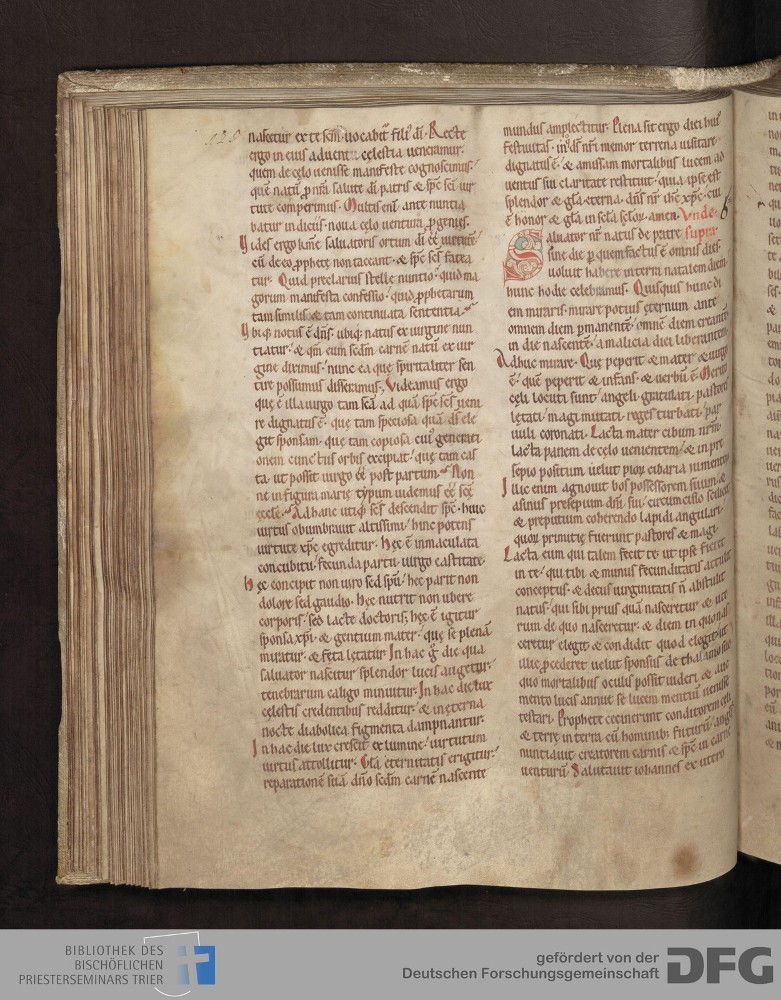 nascetur ex te scm̄. uocabit᷑ fili᷒ dī. Recte
ergo in eius aduentu celestia uenerantur.
quem de celo uenisse manifeste cognoscimus.
quē natū ꝓ nr̄a salute dī patris & spc̄ sc̄i uir
tute comperimus. Multis eni᷑ ante nuntia
batur indiciis. noua celo uentura ꝓgenies.
Uides ergo huni᷒ saluatoris ortum dī ēē uirtutē
cū de eo ꝓphete non taceant. & spc̄ sc̄s fatea
tur. Quid preclarius stelle nuntio. quid ma
gorum manifesta confessio. quid ꝓphetarum
tam similis & tam continuata sententia.
Ubiq; notus ē dn̄s. ubiq; natus ex uirgine nun
tiatur. & qm̄ eum scdm̄ carnē natū ex uir
gine diximus. nunc ea que spiritaliter sen
tire possumus disseramus. Videamus ergo
que ē illa uirgo tam sc̄a. ad quā spc̄ sc̄s ueni
re dignatus ē. que tam speciosa quā ds̄ ele
git sponsam. que tam copiosa cui᷒ generati
onem cunctus orbis excipiat. que tam cas
ta. ut possit uirgo ēē post partum. Non
ne in figura marie typum uidemus ēē sc̄e
eccle. Ad hanc utiq; sc̄s descendit spc̄. huic
uirtus obumbrauit altissimi. hinc potens
uirtute xpc̄ egreditur. Hec ē inmaculata
concubitu. fecunda partu. uirgo castitate.
Hec concipit non uiro sed spū. hec parit non
dolore sed gaudio. Hec nutrit non ubere
corporis. sed lacte doctoris. hec ē igitur
sponsa xpi & gentium mater. que se plenā
miratur. & feta letatur. In hac g̊ die qua
saluator nascitur splendor lucis augetur.
tenebrarum caligo minuitur. In hac die lux
celestis credentibus redditur. & in eterna
nocte diabolica figmenta dampnantur.
In hac die lux crescit. ex lumine uirtutum
uirtus attollitur. Gl̄a eternitatis erigitur.
reparationē suā dn̄o scdm̄ carnē nascente
mundus amplectitur. Plena sit ergo diei hui᷒
festiuitas. in᷑ ds̄ nr̄i memor terrena uisitare
dignatus ē. & amissam mortalibus lucem ad
uentus sui claritate restituit. quia ipse est
splendor & gl̄a eterna. dn̄s nr̄ ihc̄ xpc̄. cui
ē honor & gl̄a in sc̄la sc̄loꝝ. amen. Vnde
Saluator nr̄ natus de patre supra
sine die ꝑ quem factus ē omnis dies.
uoluit habere in terra natalem diem.
hunc hodie celebramus. Quisquis hunc di
em miraris. mirare potius eternum ante
omnem diem ꝑmanentē. omnē diem creantē
in die nascentē. a malicia diei liberantem.
Adhuc mirare. Que peperit & mater & uirgo
ē. quē peperit & infans & uerbū ē. Merito
celi locuti sunt. angeli gratulati. pastores
letati. magi mutati. reges turbati. par
uuli coronati. Lacta mater cibum nr̄m.
lacta panem de celo uenientem. & in pre
sepio positum uelut pioꝝ cibaria iumentoꝝ.
Illic enim agnouit bos possessorem suum. &
asinus presepium dn̄i sui. circumcisio scilicet
& preputium coherendo lapidi angulari.
quoꝝ primitie fuerunt pastores & magi.
Lacta eum qui talem fecit te. ut ipse fieret
in te. qui tibi & munus fecunditatis attulit
conceptus. & decus uirginitatis n̄ abstulit
natus. qui sibi prius quā nasceretur & ute
rum de quo nasceretur. & diem in quo nas
ceretur elegit & condidit quod elegit. ut
illic ꝓcederet uelut sponsus de thalamo suo
quo mortalibus oculis possit uideri. & aug
mento lucis annue se lucem mentiū uenisse
testari. Prophete cecinerunt conditorem celi
& terre in terra cū hominib; futurū. angls̄
nuntiauit creatorem carnis & spc̄ in carne
uenturū. Salutauit iohannes ex utero
BIBLIOTHEK DES
BISCHÖFLICHEN
PRIESTERSEMINARS TRIER
gefördert von der
Deutschen Forschungsgemeinschaft
DFG